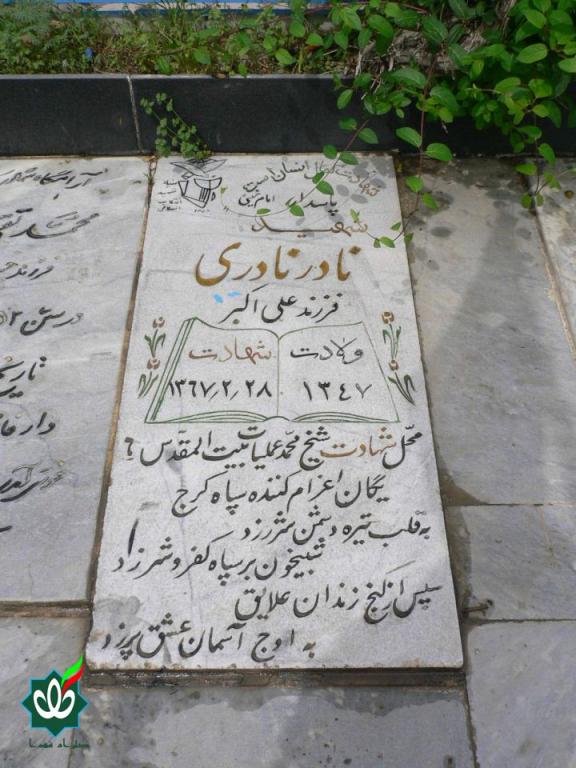 شهادت کمال انسان است
پاسدار
امام خمینی
شهید
نادر نادری
فرزند علی اکبر
ولادت
۱۳۴۷
شهادت
۱۳۶۷٫۲٫۲۸
محل شهادت شیخ محمد عملیات بیت المقدس ۶
یگان اعزام کننده سپاه کرج
به قلب تیره دشمن شرر زد
شبیخون بر سپاه کفر و شر زد
سپس از کنج زندان علایق
به اوج آسمان عشق پر زد
آرامگاه
محمد
فرزند
در سن
تاریخ